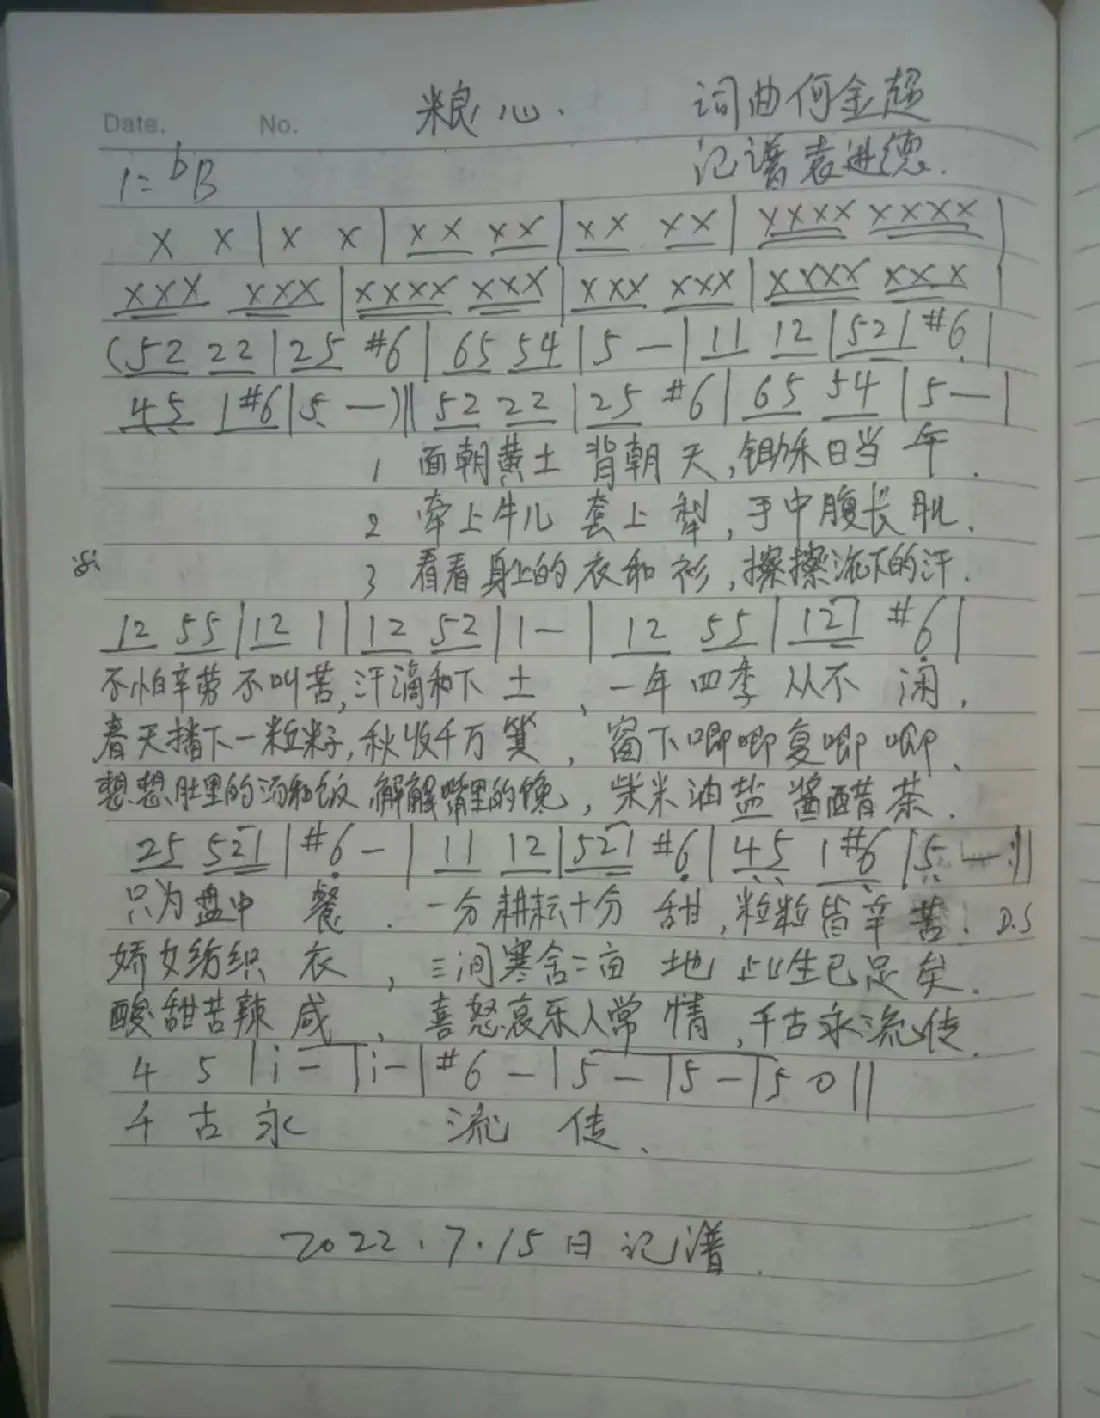 Date. No. 粮心. 词曲何金超
1=bB 记谱袁进德.
X X | X X | XX XX | XX XX | XXXX XXXX |
XXX XXX | XXXX XXX | XXX XXX | XXXX XXX |
(52 22 | 25 #6 | 65 54 | 5 — | 11 12 | 521 #6 |
45 1#6 | 5 —)‖ 52 22 | 25 #6 | 65 54 | 5 — |
1 面朝黄土 背朝天,锄禾日当午.
2 牵上牛儿 套上犁,手中腹长肌.
3 看看身上的衣和衫,擦擦流下的汗.
12 55 | 12 1 | 12 52 | 1 — | 12 55 | 121 #6 |
不怕辛劳不叫苦,汗滴和下土,一年四季从不闲,
春天播下一粒籽,秋收千万箕,窗下唧唧复唧唧、
想想肚里的汤和饭 解解嘴里的馋,柴米油盐酱醋茶.
25 521 | #6 — | 11 12 | 521 #6 | 45 1#6 | 5 — :‖
只为盘中餐.一分耕耘十分甜,粒粒皆辛苦. D.S
娇女纺织衣,三间寒舍二亩地 此生已足矣.
酸甜苦辣咸,喜怒哀乐人常情,千古永流传.
4 5 | i — | i — | #6 — | 5 — | 5 — | 5 0 ‖
千古永 流传、
2022.7.15日记谱.